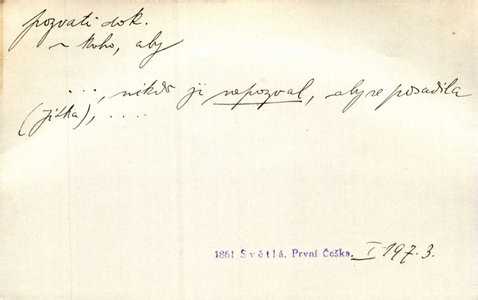 pozvati dok.
~ koho, aby
..., nikdo ji nepozval, aby se posadila
(Jitka), ....
1861 Světlá, První Češka. I 197.3.